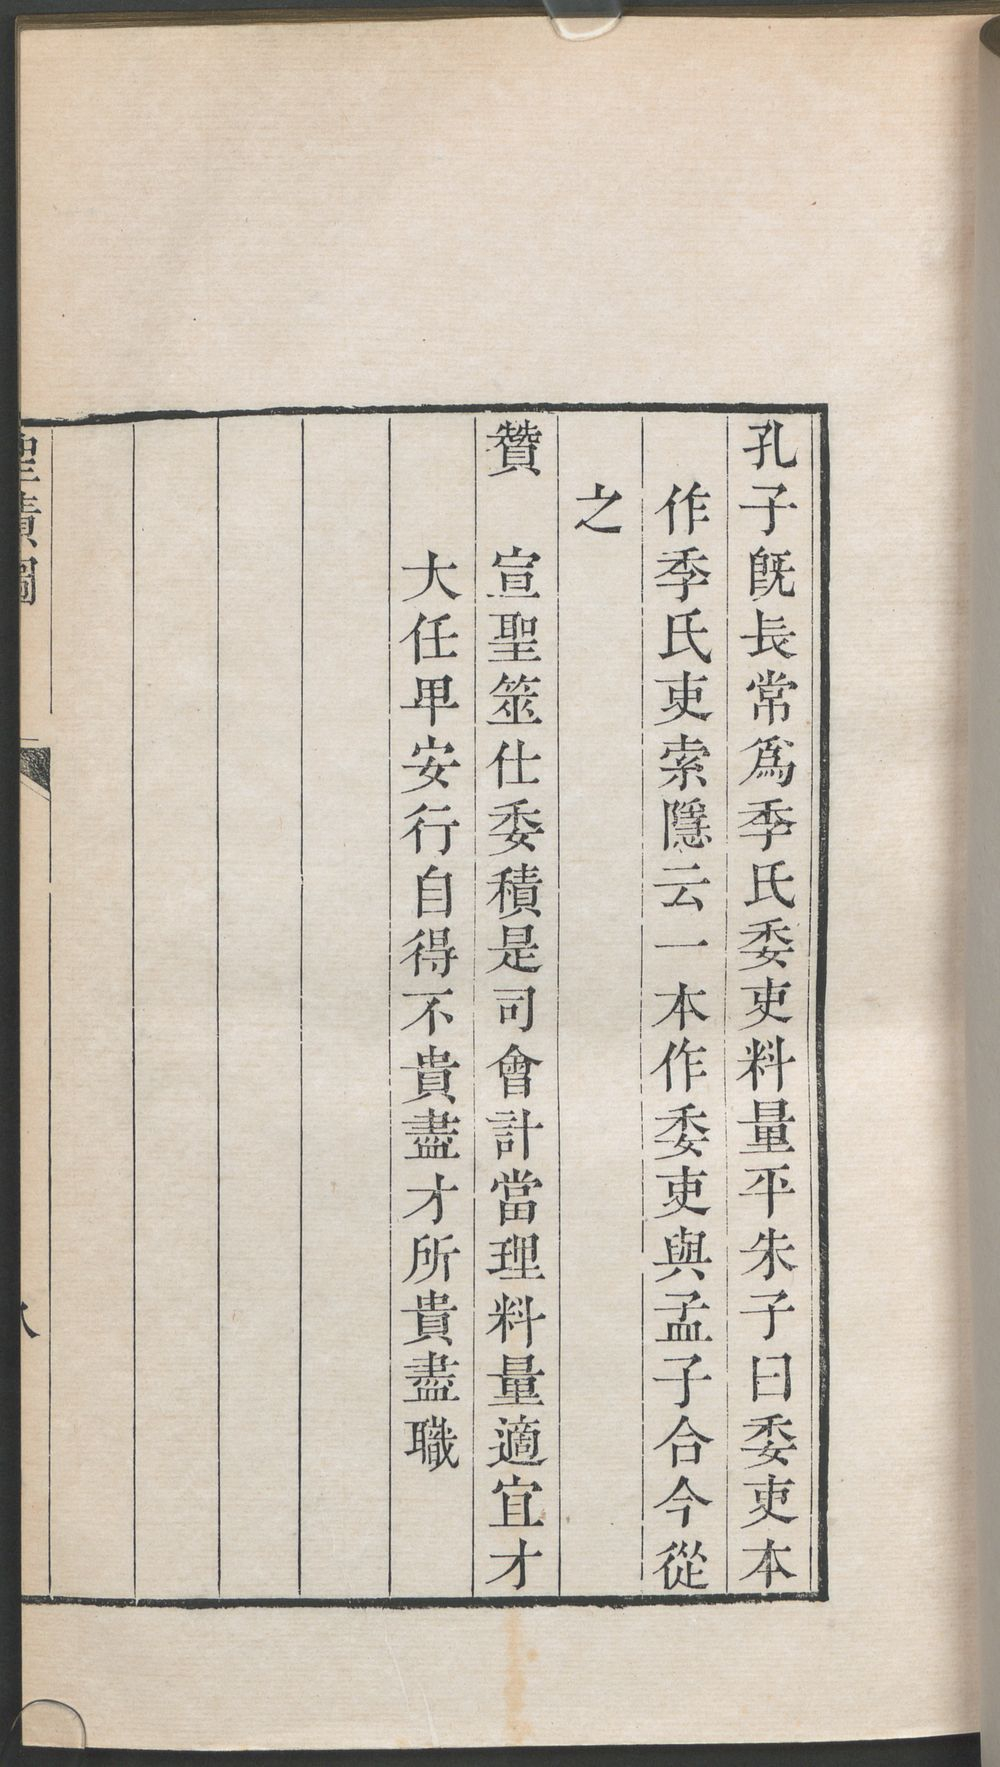 孔子旣長常爲季氏委吏料量平朱子曰委吏本
作季氏吏索隱云一本作委吏與孟子合今從
之
贊　宣聖筮仕委積是司會計當理料量適宜才
大任𤰞安行自得不貴盡才所貴盡職
聖蹟圖
八